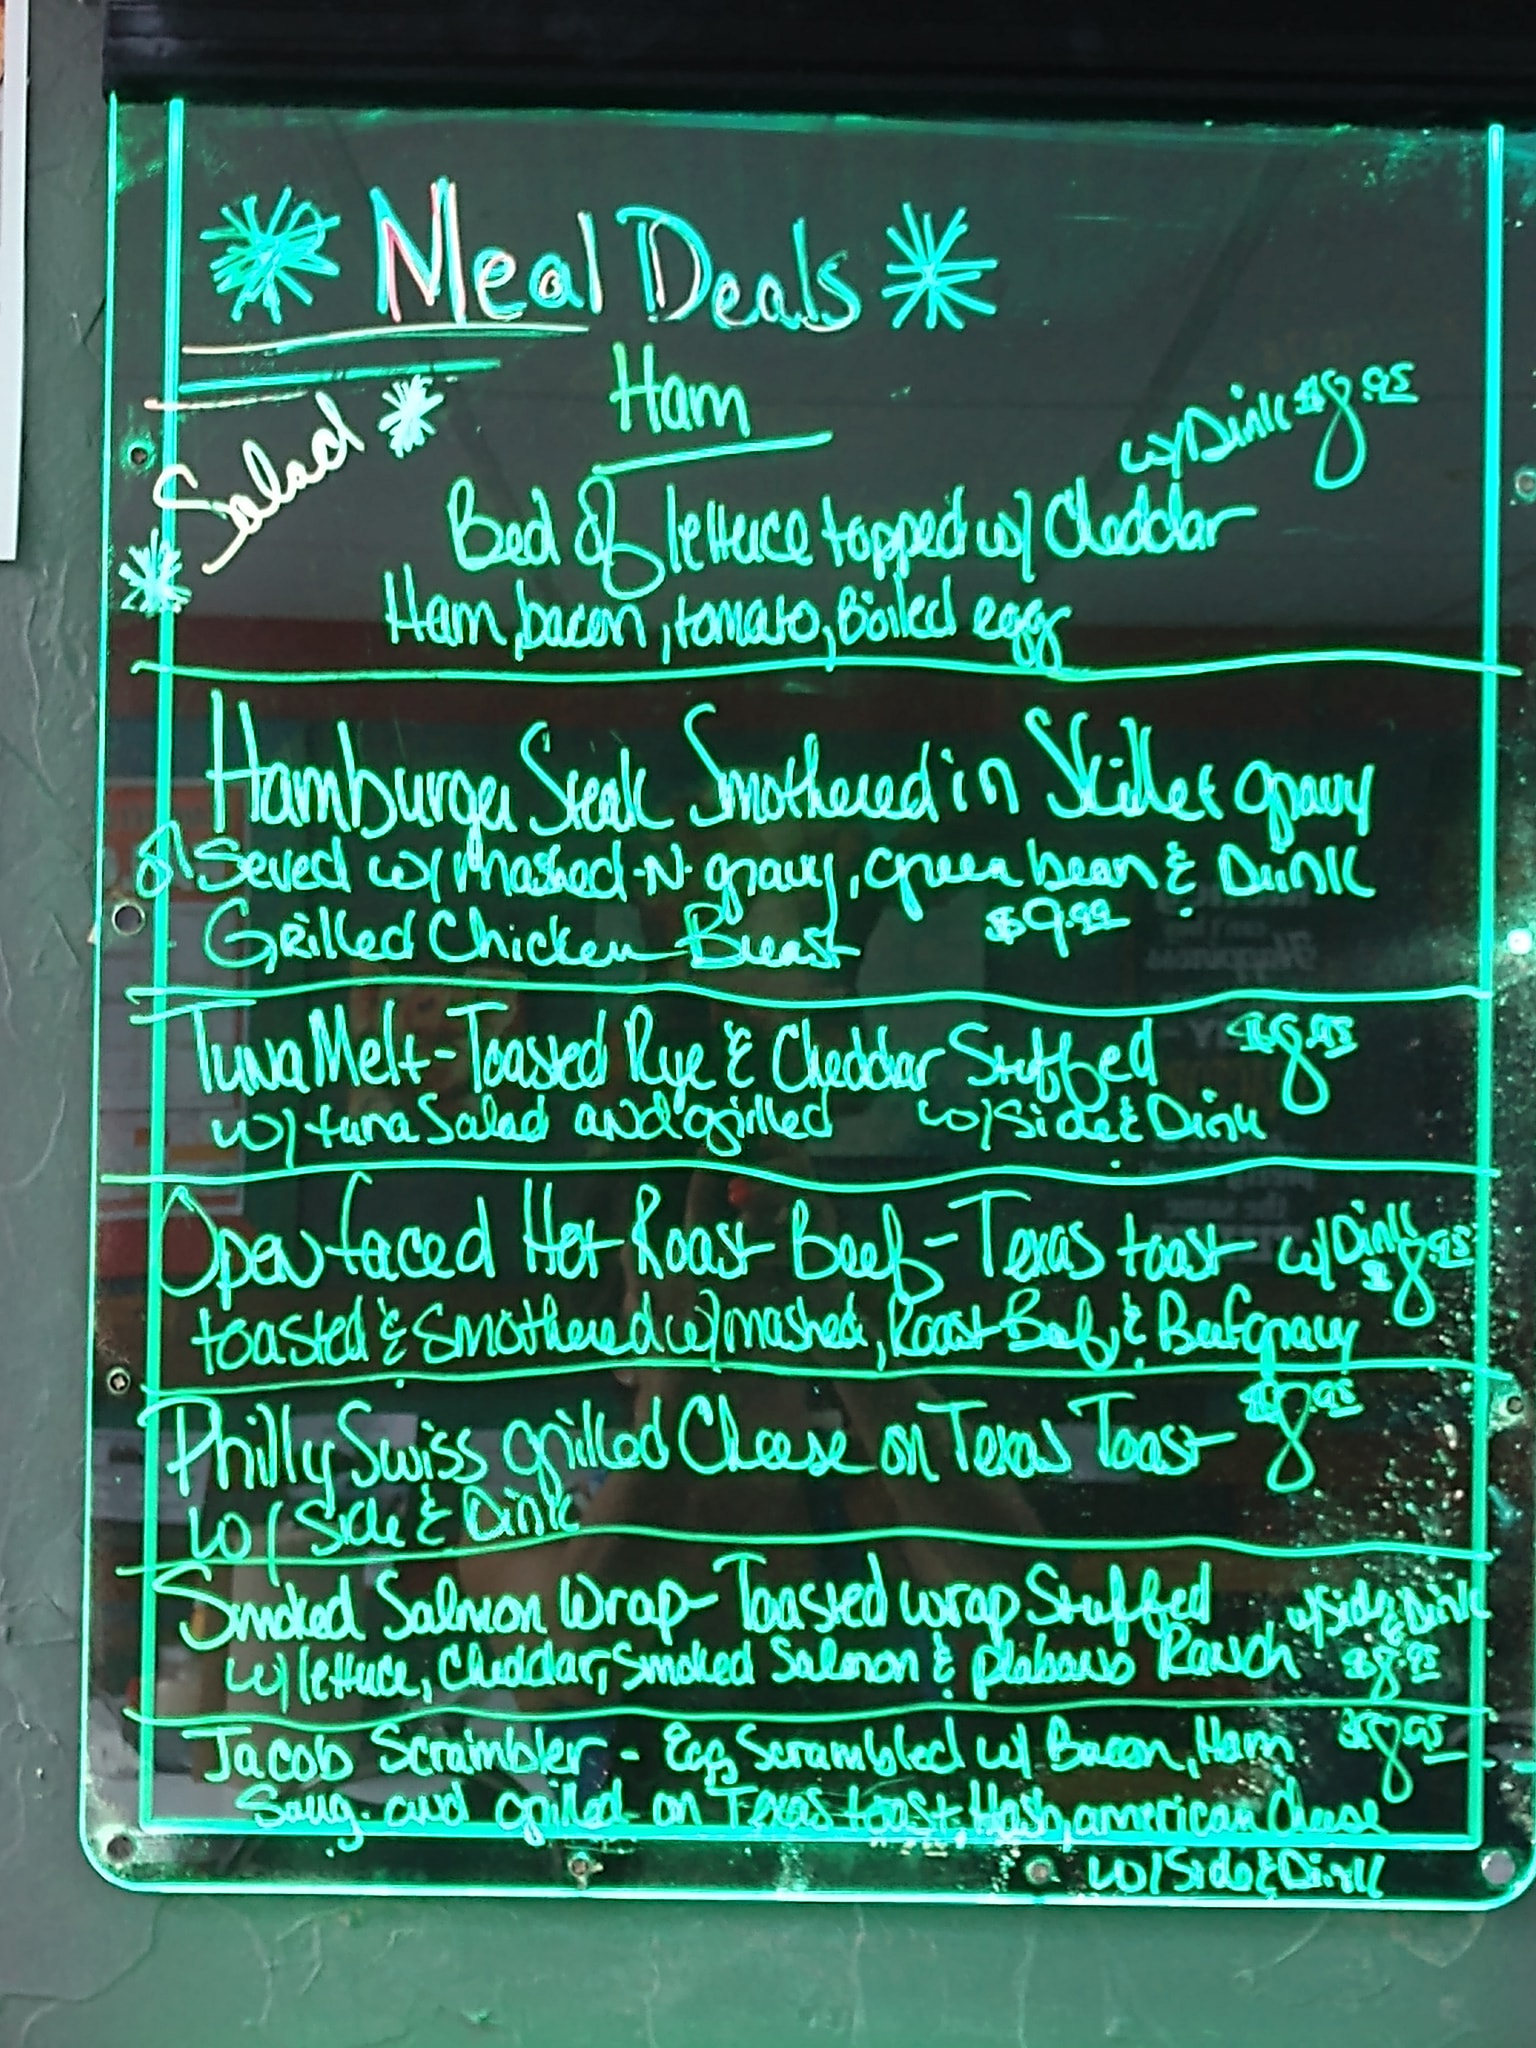 Meal Deals
Salad
Ham
w/ Dink $8.95
Bed of lettuce topped w/ Cheddar
Ham, bacon, tomato, Boiled egg
Hamburger Steak Smothered in Skillet gravy
or Served w/ mashed-N-gravy, green bean & Drink
Grilled Chicken Breast $9.99
Tuna Melt - Toasted Rye & Cheddar Stuffed $8.95
w/ tuna Salad and grilled w/ Side & Dink
Open faced Hot Roast Beef - Texas toast w/ Dink $8.95
toasted & Smothered w/ mashed, Roast Beef, & Beef gravy
Philly Swiss grilled Cheese on Texas Toast $8.95
w/ Side & Dink
Smoked Salmon Wrap - Toasted wrap Stuffed w/ Side & Dink
w/ lettuce, Cheddar, Smoked Salmon & Ranch $8.95
Jacob Scrambler - Egg Scrambled w/ Bacon, Ham $8.95
and grilled on Texas toast, Hash, american Cheese
w/ Side & Dink